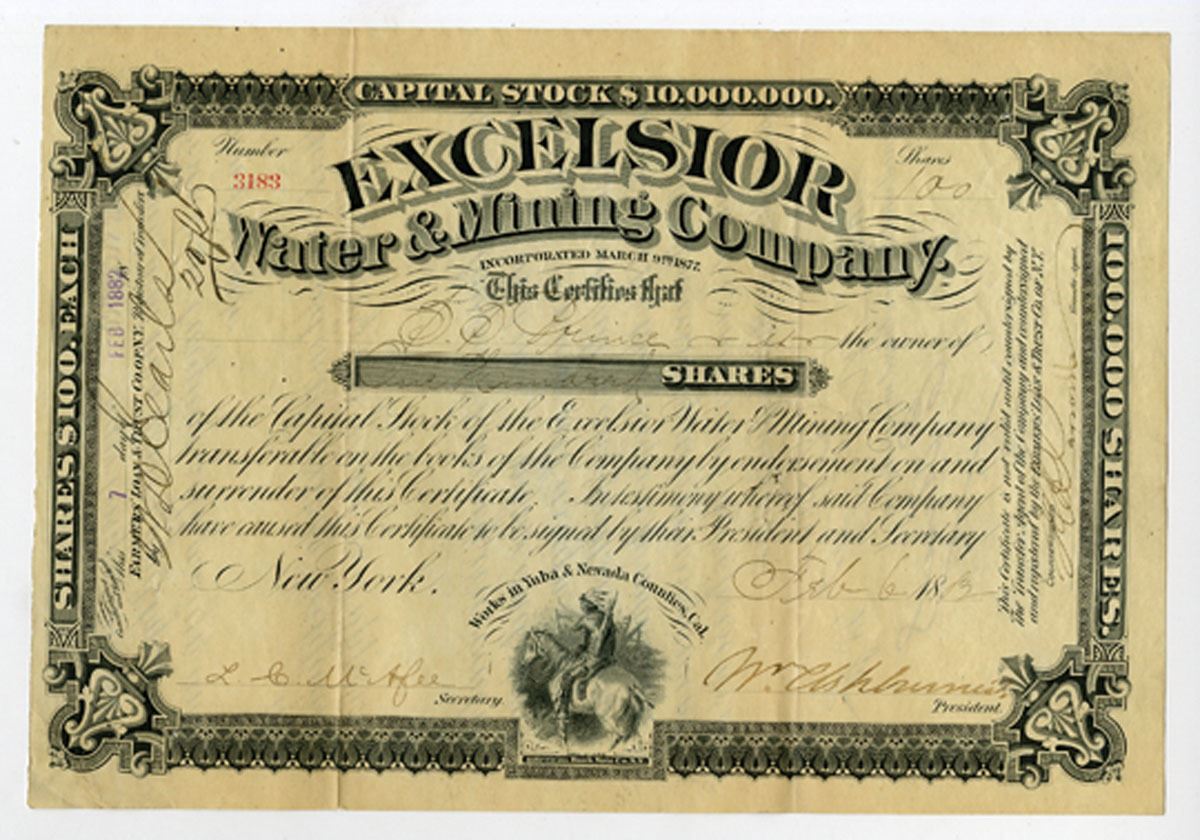 CAPITAL STOCK $10.000.000.
Number
3183
Shares
100
EXCELSIOR
Water & Mining Company.
INCORPORATED MARCH 9TH 1877.
This Certifies that
the owner of
One Hundred SHARES
of the Capital Stock of the Excelsior Water & Mining Company
transferable on the books of the Company by endorsement on and
surrender of this Certificate. In testimony whereof said Company
have caused this Certificate to be signed by their President and Secretary
New York. Feb 6 188
Works in Yuba & Nevada Counties, Cal.
L. C. McAfee
Secretary.
Wm Ashburner
President.
SHARES $100. EACH
100,000 SHARES.
this 7 day of FEB 1882
FARMERS LOAN & TRUST CO OF N.Y.
by
20 pd
This Certificate is not valid until countersigned by
the Transfer Agent of the Company and countersigned
and registered by the FARMERS LOAN & TRUST CO. OF N.Y.
Countersigned
Transfer Agent.